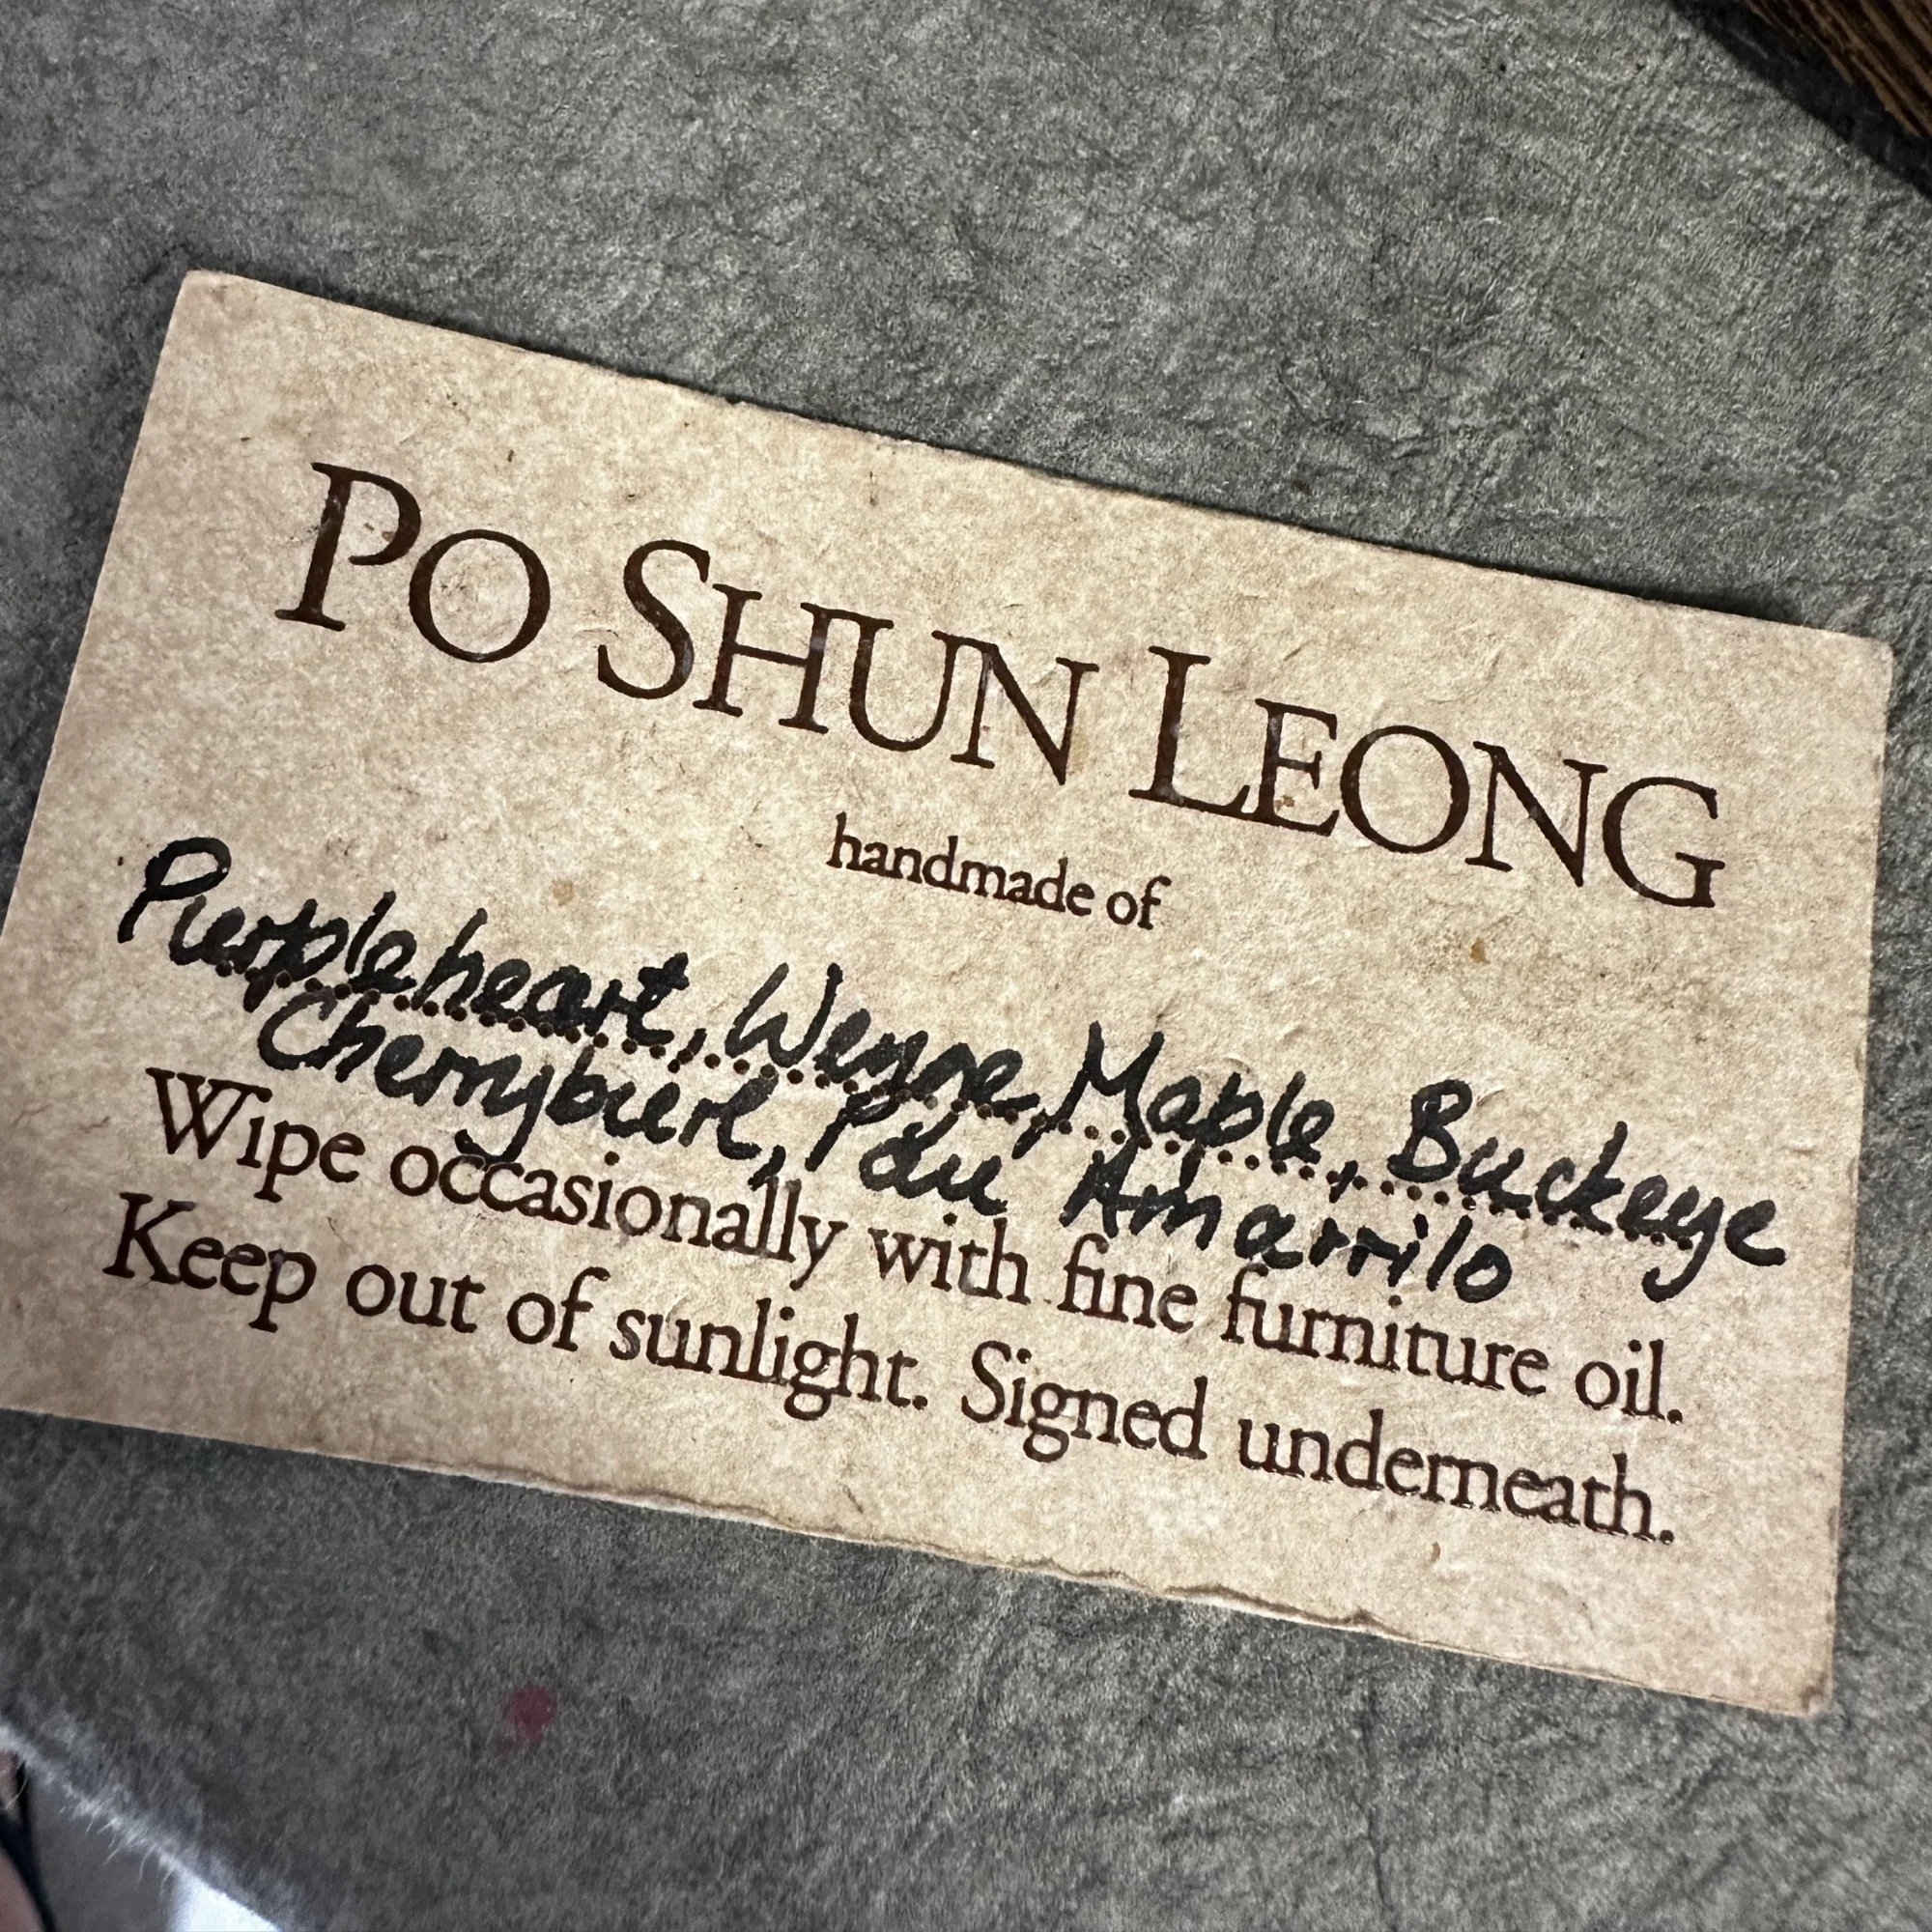 PO SHUN LEONG
handmade of
Purpleheart, Wenge, Maple, Buckeye
Cherryburl, Pau Amarrilo
Wipe occasionally with fine furniture oil.
Keep out of sunlight. Signed underneath.